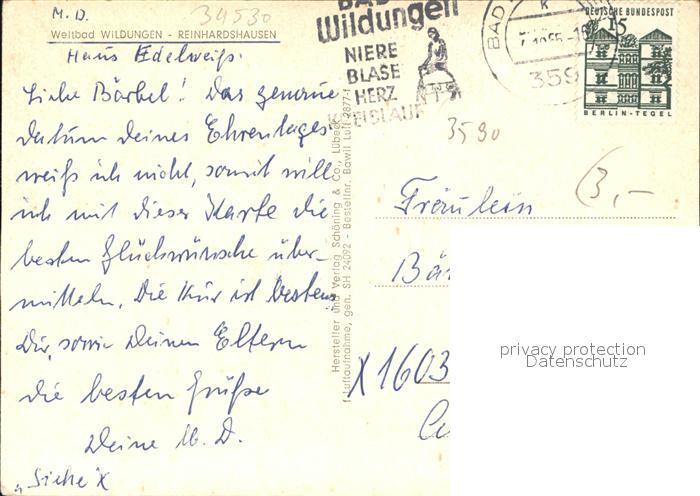 M. D.
34530
Weltbad WILDUNGEN - REINHARDSHAUSEN
Haus Edelweiß.
Liebe Bärbel! Das genaue
datum deines Ehrentages
weiß ich nicht, somit will
ich mit dieser Karte die
besten Glückwünsche über-
mitteln. Die Kur ist bestens
Dir, sowie Deinen Eltern
die besten Grüße
Deine M. D.
"Siehe X
BAD
Wildungen
NIERE
BLASE
HERZ
KREISLAUF
BAD
359
DEUTSCHE BUNDESPOST
15
BERLIN-TEGEL
Hersteller und Verlag Schöning & Co., Lübeck
f. Luftaufnahme, gen. SH 24092 - Bestellnr. Bawil Luft 2877-1
3590
(3,-
Fräulein
Bä
X 1603
privacy protection
Datenschutz